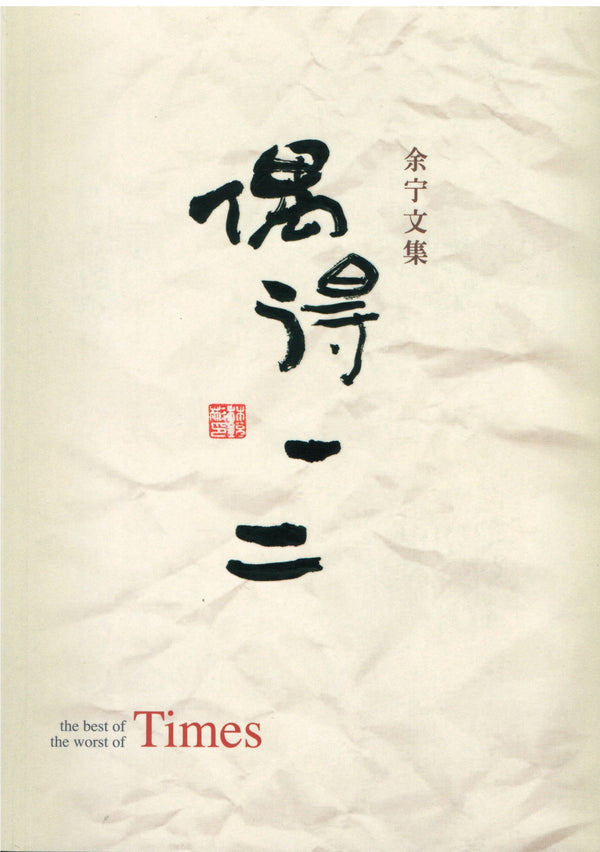 余宁文集
偶得一二
the best of
the worst of
Times